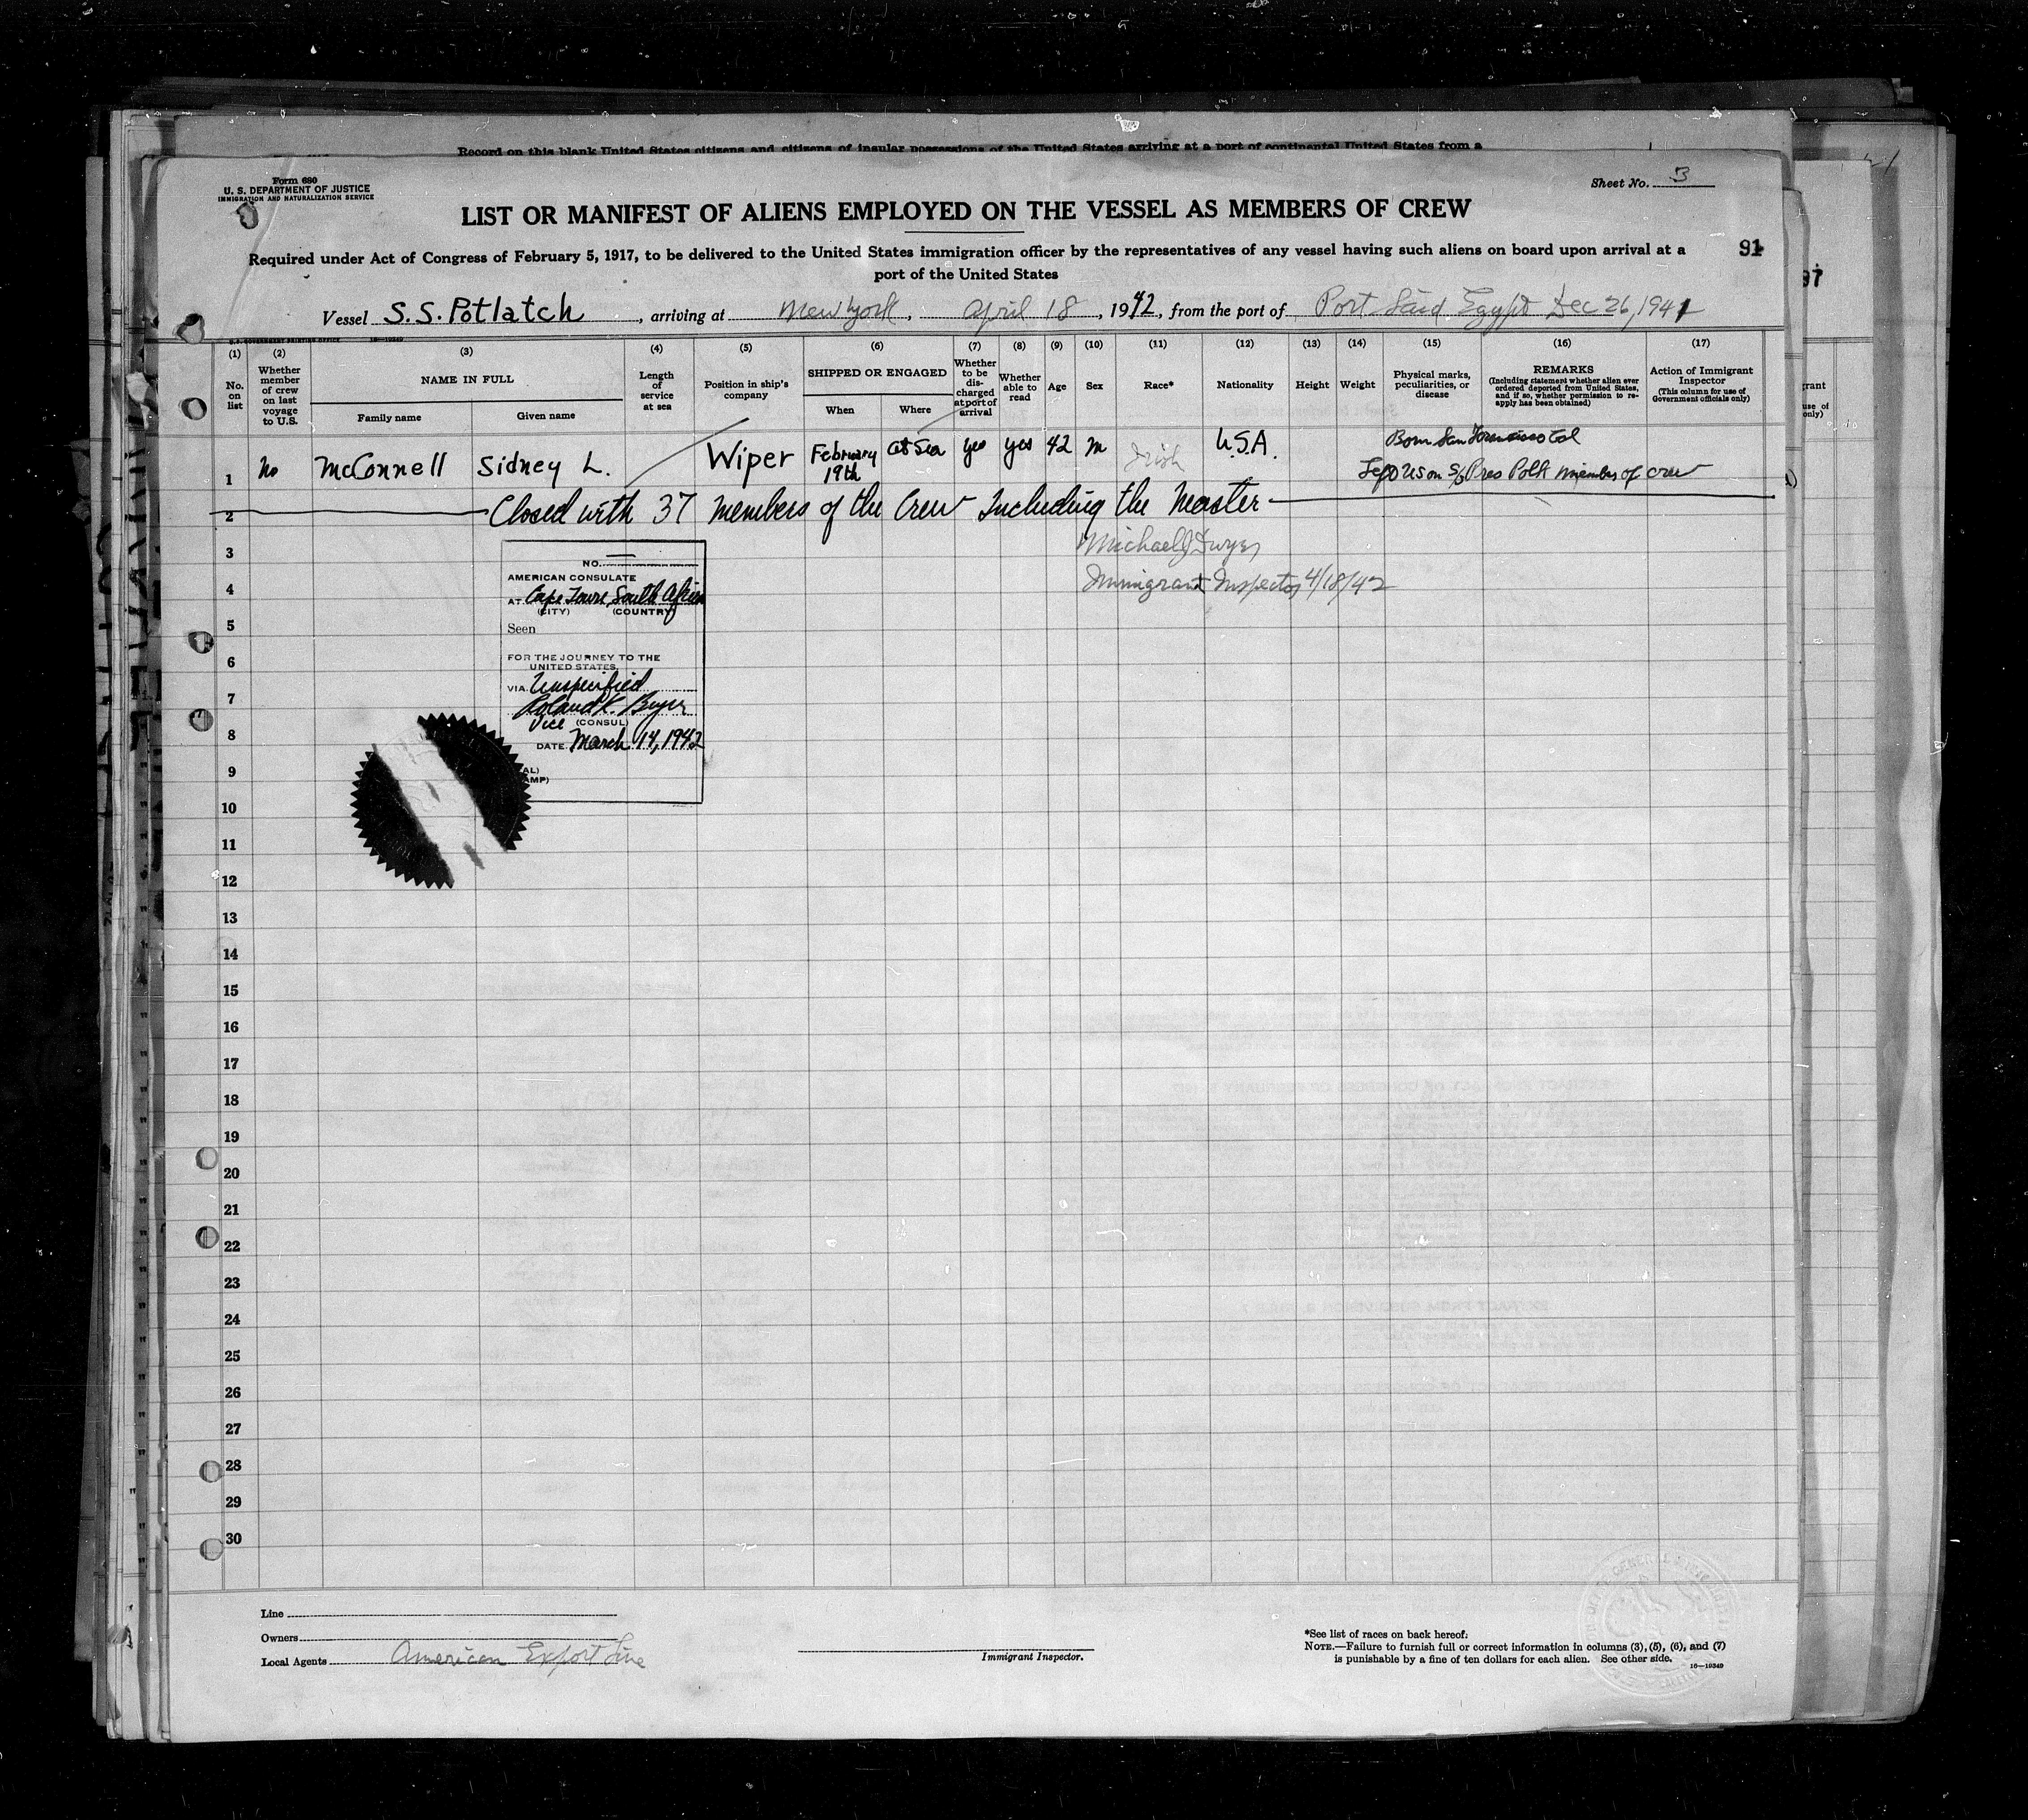 Record on this blank United States citizens and citizens of insular possessions of the United States arriving at a port of continental United States from a
Form 680
U. S. DEPARTMENT OF JUSTICE
IMMIGRATION AND NATURALIZATION SERVICE
Sheet No. 3
LIST OR MANIFEST OF ALIENS EMPLOYED ON THE VESSEL AS MEMBERS OF CREW
91
Required under Act of Congress of February 5, 1917, to be delivered to the United States immigration officer by the representatives of any vessel having such aliens on board upon arrival at a
port of the United States
Vessel S.S. Potlatch, arriving at New York, April 18, 1942, from the port of Port Said Egypt Dec 26, 1941
U.S. GOVERNMENT PRINTING OFFICE 16—19349
(1) (2) (3) (4) (5) (6) (7) (8) (9) (10) (11) (12) (13) (14) (15) (16) (17)
No. on list
Whether member of crew on last voyage to U.S.
NAME IN FULL
Family name
Given name
Length of service at sea
Position in ship's company
SHIPPED OR ENGAGED
When
Where
Whether to be discharged at port of arrival
Whether able to read
Age
Sex
Race*
Nationality
Height
Weight
Physical marks, peculiarities, or disease
REMARKS
(Including statement whether alien ever ordered deported from United States, and if so, whether permission to reapply has been obtained)
Action of Immigrant Inspector
(This column for use of Government officials only)
1 No McConnell Sidney L. Wiper February 19th at Sea yes yes 42 m Irish U.S.A. Born San Francisco Cal
Left US on S/S Pres Polk member of crew
2 Closed with 37 members of the Crew Including the Master
3 Michael J Dwyer
4 Immigrant Inspector 4/18/42
NO.
AMERICAN CONSULATE
AT Cape Town, South Africa
(CITY) (COUNTRY)
Seen
FOR THE JOURNEY TO THE
UNITED STATES
VIA Unspecified
Roland K. Beyer
Vice (CONSUL)
DATE March 14, 1942
5
6
7
8
9
10
11
12
13
14
15
16
17
18
19
20
21
22
23
24
25
26
27
28
29
30
Line
Owners
Local Agents American Export Line
Immigrant Inspector.
*See list of races on back hereof.
NOTE.—Failure to furnish full or correct information in columns (3), (5), (6), and (7)
is punishable by a fine of ten dollars for each alien. See other side.
16—19349